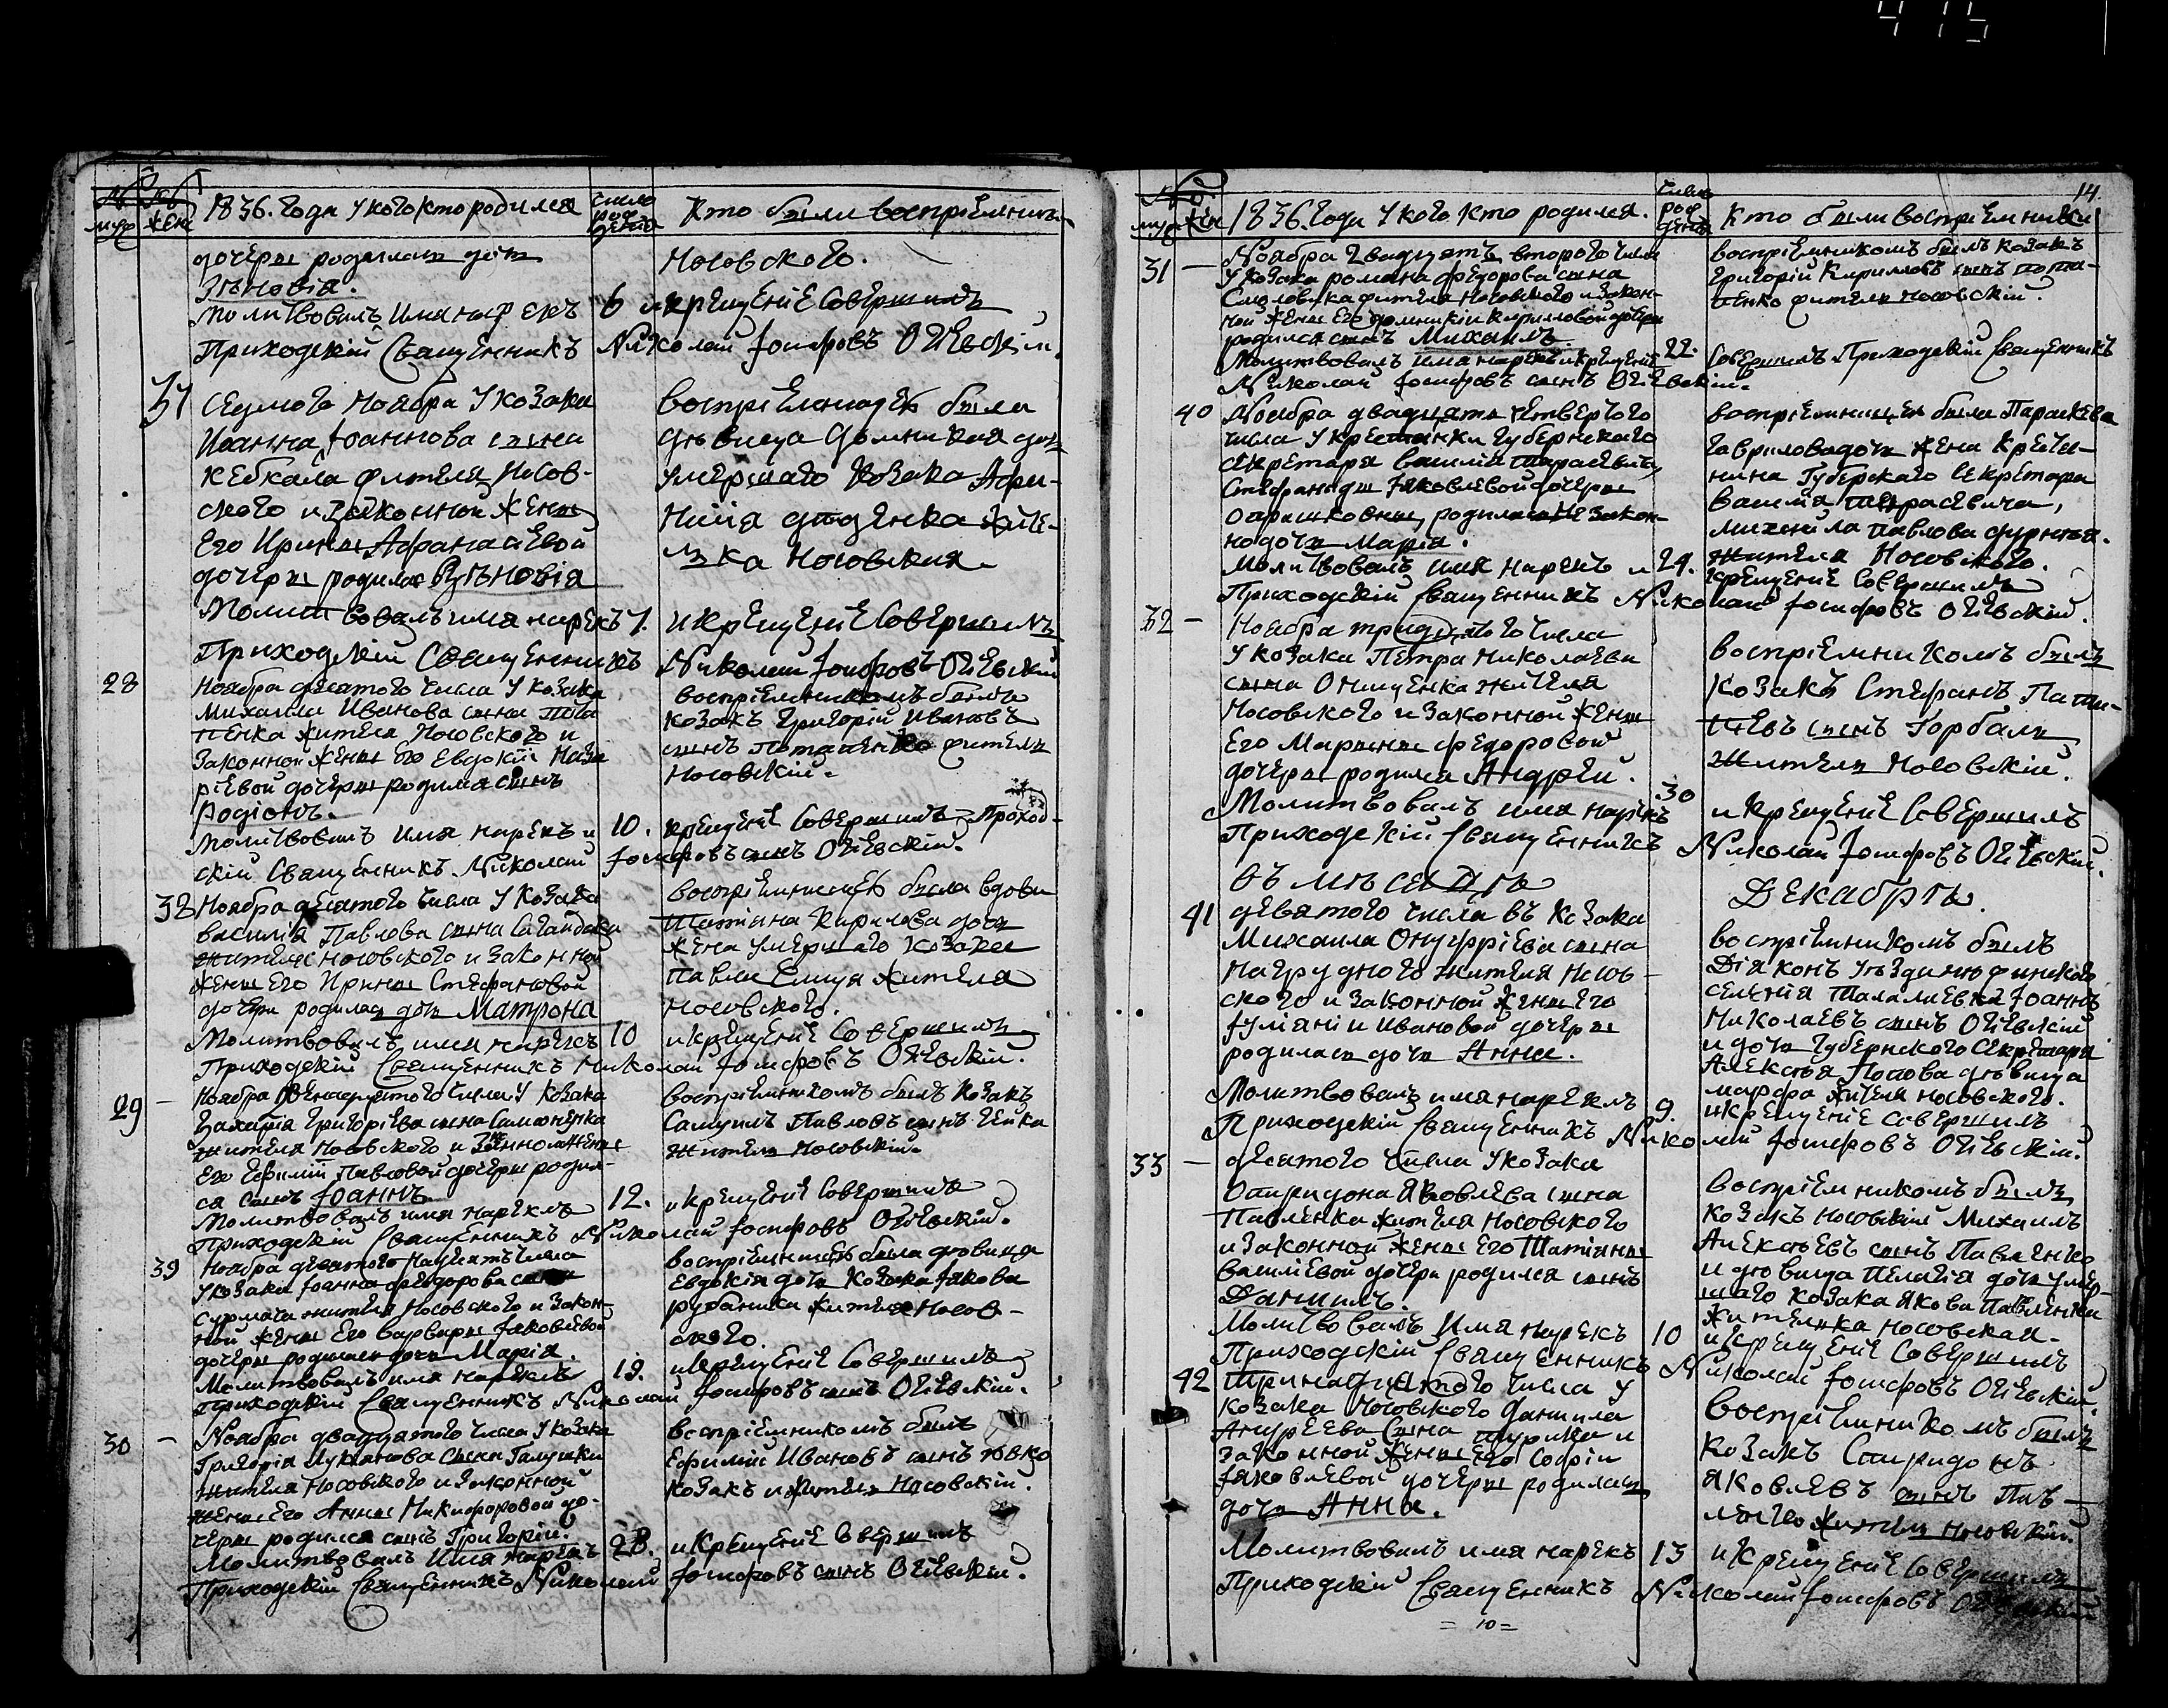 1836. года у кого кто родился
число рождения
Кто были воспріемники
муж
жен
дочери родилась дочь
Зѣновія.
Молитвовалъ имя нарекъ
Приходскій Священникъ
Носовского.
6 и крещеніе Совершилъ
Николай Іосифовъ
37 седмого Ноября У козака
Иоанна Іоаннова сына
Кебкала жителя Носов-
ского и законной жены
Его Ирины Афанасіевой
дочери родилась Зѣновія
Молитвовалъ имя нарекъ 7.
Приходскій Священникъ
воспріемницею была
дѣвица Домникія дочь
умершаго Козака Афа-
насія жите-
лька Носовская
и крещеніе Совершилъ
Николай Іосифовъ
28 Ноября десятого числа У козака
Михаила Иванова сына Пота
пенка жителя Носовского и
Законной жены Его Евдокіи Наза
ріевой дочери родился сынъ
Родіонъ.
Молитвовалъ имя нарекъ и 10.
скій Священникъ Николай
воспріемникомъ былъ
козакъ Григорій Ивановъ
сынъ Потапенко житель
Носовскій.
крещеніе Совершилъ Приход-
Іосифовъ сынъ
38 Ноября десятого числа У Козака
василія Павлова сына
жителя носовского и законной
жены Его Ирины Стефановой
дочери родилась дочь Матрона
Молитвовалъ имя нарекъ 10
Приходскій Священникъ Николай Іосифовъ
воспріемницею была вдова
Татіана Кирилова дочь
жена умершаго козака
Павла жителя
Носовского.
и крещеніе Совершилъ
29 Ноября числа У козака
Захарія Григоріева сына Самойленка
жителя Носовского и Законной жены
Его Ефиміи Павловой дочери родил-
ся сынъ Іоаннъ
Молитвовалъ имя нарекъ 12.
Приходскій Священникъ Николай Іосифовъ
воспріемникомъ былъ козакъ
Самуилъ Павловъ сынъ
житель Носовскій.
и крещеніе Совершилъ
39 Ноября девятого надцять числа
У козака Іоанна Федорова сына
Сурмача жителя Носовского и Закон-
ной жены Его Варвары Іаковлевой
дочери родилась дочь Марія.
Молитвовалъ имя нарекъ 19.
Приходскій Священникъ Николай Іосифовъ сынъ
воспріемницею была дѣвица
Евдокія дочь Козака Іакова
жителя Носов-
ского.
и крещеніе Совершилъ
30 Ноября двадцятого числа У козака
Григорія Лукіанова сына Галушки
жителя Носовского и Законной
жены Его Анны Никифоровой до-
чери родился сынъ Григорій.
Молитвовалъ имя нарекъ
Приходскій Священникъ Николай
воспріемникомъ былъ
Ефимій Ивановъ сынъ
козакъ и житель Носовскій.
и крещеніе совершилъ
Іосифовъ сынъ
14.
1836. года У кого кто родился.
число рожденія
Кто были воспріемники
31 Ноября двадцять второго числа
У козака романа федорова сына
жителя Носовского и закон-
ной жены Его Домникіи Кирилловой дочери
родился сынъ Михаилъ.
Молитвовалъ имя нарекъ и крещеніе 22.
Николай Іосифовъ сынъ
воспріемникомъ былъ козакъ
Григорій Кирилловъ сынъ Пота-
пенко житель носовскій.
совершилъ Приходскій Священникъ
40 Ноября двадцять четвертого
числа У крестянки Губернского
секретаря василія Тарасевича
Стефаниды Іаковлевой дочери
родилась незакон-
но дочь Марія.
Молитвовалъ имя нарекъ и 24.
Приходскій Священникъ Николай Іосифовъ
воспріемницею была Параскева
Гаврилова дочь жена крестя-
нина Губерского Секретаря
василія Тарасевича,
михаила павлова
жителя Носовского.
крещеніе Совершилъ
32 Ноября тридцятого числа
У козака Петра Николаева
сына Онищенка жителя
Носовского и Законной жены
Его Марины федоровой
дочери родился Андрей.
Молитвовалъ имя нарекъ 30
Приходскій Священникъ
воспріемникомъ былъ
козакъ Стефанъ
сынъ Горбаль
житель Носовскій.
и крещеніе Совершилъ
Николай Іосифовъ
въ мѣсяцѣ
Декабрѣ.
41 девятого числа въ козака
Михаила Онуфріева сына
Нагрудного жителя Носов-
ского и законной жены Его
Іуліаніи Ивановой дочери
родилась дочь Анна.
Молитвовалъ имя нарекъ 9.
Приходскій Священникъ Николай Іосифовъ
воспріемникомъ былъ
Діяконъ
селенія Талалаевки Іоаннъ
Николаевъ сынъ
и дочь Губернского Секретаря
Алексѣя дѣвица
марфа жителя носовского.
и крещеніе Совершилъ
33 десятого числа У козака
Спиридона Яковлева сына
Павленка жителя носовского
и законной жены Его Татіаны
василіевой дочери родился сынъ
Даніилъ.
Молитвовалъ Имя нарекъ 10
Приходскій Священникъ
воспріемникомъ былъ
козакъ носовскій Михаилъ
Алексѣевъ сынъ Павленко
и дѣвица Пелагія дочь умер-
шаго козака Якова Павленка
жителька носовская.
и крещеніе Совершилъ
Николай Іосифовъ
42 Тринадцятого числа У
козака Носовского Даніила
Андреева Сына и
законной жены Его Софіи
Іаковлевой дочери родилась
дочь Анна.
Молитвовалъ имя нарекъ 13
Приходскій Священникъ
воспріемникомъ былъ
козакъ Спиридонъ
Яковлевъ сынъ Пав-
ленко житель носовскій.
и крещеніе Совершилъ
Николай Іосифовъ
=10=